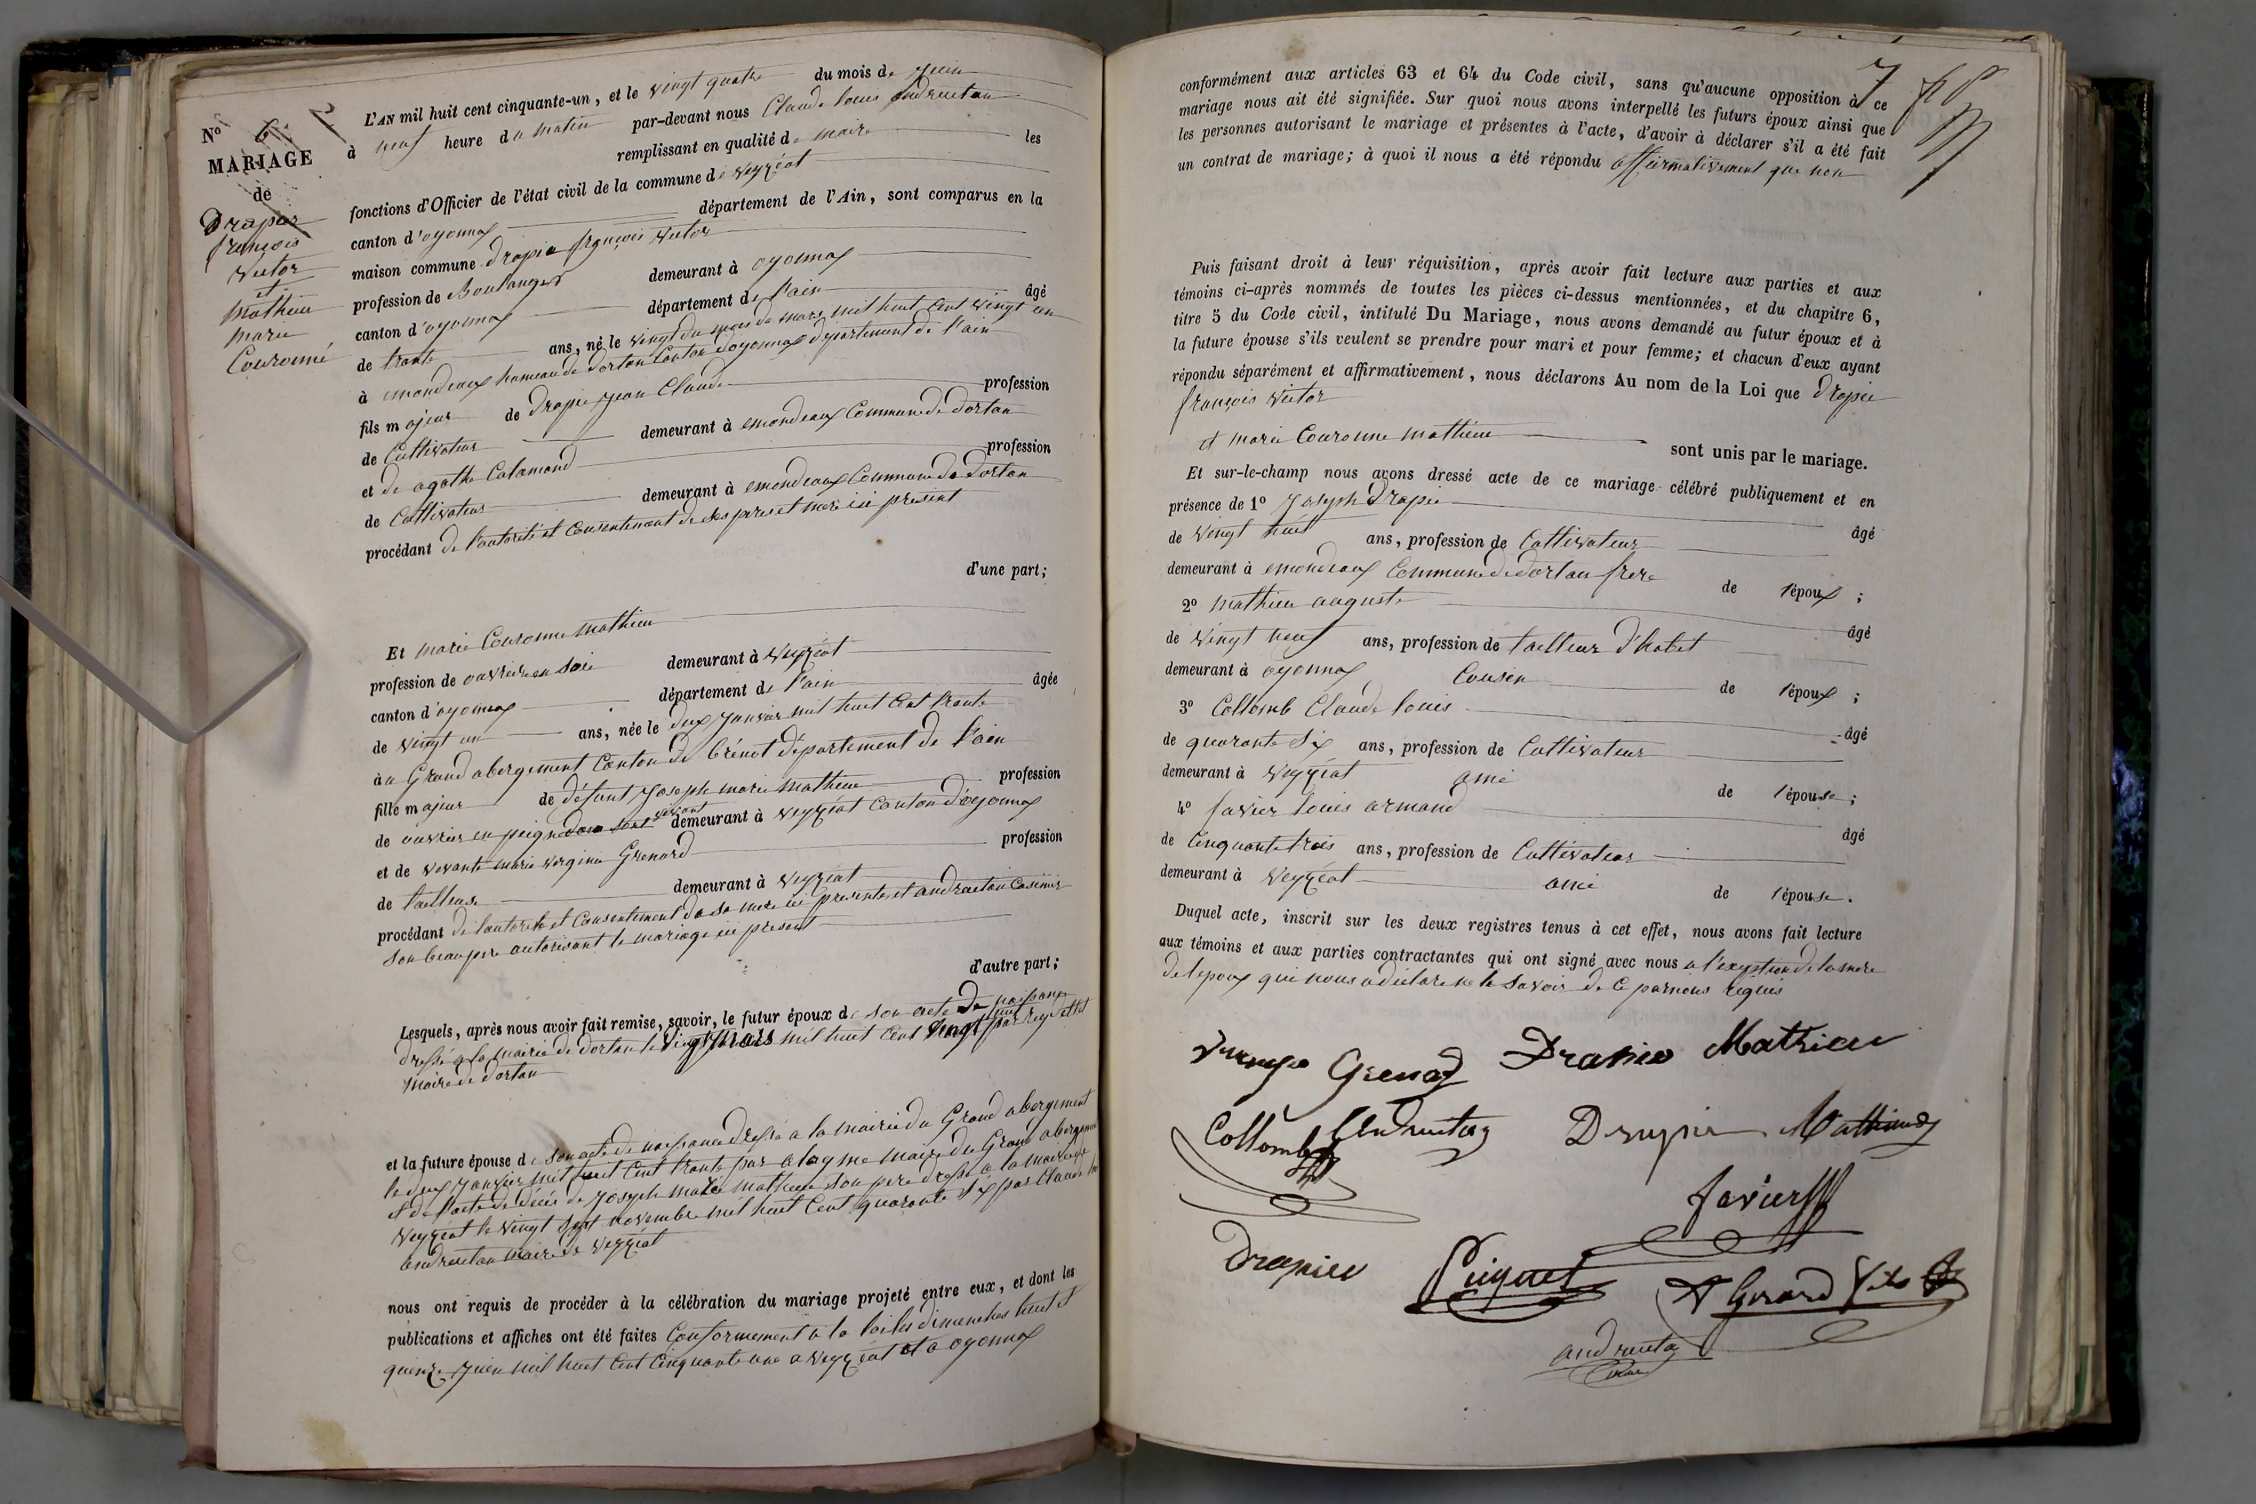 L'AN mil huit cent cinquante-un, et le vingt quatre du mois de juin
à neuf heure du matin par-devant nous Claude louis andruetan
remplissant en qualité de maire les
fonctions d'Officier de l'état civil de la commune de veyziat
canton d'oyonnax département de l'Ain, sont comparus en la
maison commune drapier françois victor
profession de Boulanger demeurant à oyonnax
canton d'oyonnax département de l'ain âgé
de trente ans, né le vingt du mois de mars mil huit cent vingt un
à emondeaux hameau de dortan Canton d'oyonnax département de l'ain
fils majeur de drapier jean Claude profession
de Cultivateur demeurant à emondeaux Commune de dortan
et de agathe Calamand profession
de Cultivateur demeurant à emondeaux Commune de dortan
procédant de l'autorité et Consentement de ses pere et mere ici présent
d'une part;
N° 6
MARIAGE
de
Drapier
françois
victor
et
Mathieu
marie
Couronné
Et marie Couronne mathieu
profession de ouvrière en soie demeurant à veyziat
canton d'oyonnax département de l'ain âgée
de vingt un ans, née le deux janvier mil huit Cent trente
à u Grand abergement Canton de brénot département de l'ain
fille majeur de défunt joseph marie mathieu profession
de ouvrier en peigne demeurant à veyziat Canton d'oyonnax
et de vivante marie virginie Grenard profession
de tailleuse demeurant à veyziat
procédant de l'autorité et Consentement de sa mere ici presente et andruetan Casimir
son beaupere autorisant le mariage ici present
d'autre part;
Lesquels, après nous avoir fait remise, savoir, le futur époux de son acte de naissance
dressé a la mairie de dortan le vingt mars mil huit cent vingt un par
maire de dortan
et la future épouse de son acte de naissance dressé a la mairie du Grand abergement
le deux janvier mil huit Cent trente par maire du Grand abergement
et de l'acte de décès de joseph marie mathieu son pere dressé a la mairie de
veyziat le vingt sept novembre mil huit Cent quarante six par Claude
andruetan maire de veyziat
nous ont requis de procéder à la célébration du mariage projeté entre eux, et dont les
publications et affiches ont été faites Conformement a la loi les dimanches huit et
quinze juin mil huit Cent Cinquante une a veyziat et a oyonnax
7
conformément aux articles 63 et 64 du Code civil, sans qu'aucune opposition à ce
mariage nous ait été signifiée. Sur quoi nous avons interpellé les futurs époux ainsi que
les personnes autorisant le mariage et présentes à l'acte, d'avoir à déclarer s'il a été fait
un contrat de mariage; à quoi il nous a été répondu affirmativement que non
Puis faisant droit à leur réquisition, après avoir fait lecture aux parties et aux
témoins ci-après nommés de toutes les pièces ci-dessus mentionnées, et du chapitre 6,
titre 5 du Code civil, intitulé Du Mariage, nous avons demandé au futur époux et à
la future épouse s'ils veulent se prendre pour mari et pour femme; et chacun d'eux ayant
répondu séparément et affirmativement, nous déclarons Au nom de la Loi que drapier
françois victor
et marie Couronne mathieu sont unis par le mariage.
Et sur-le-champ nous avons dressé acte de ce mariage célébré publiquement et en
présence de 1° joseph drapier âgé
de vingt huit ans, profession de Cultivateur
demeurant à emondeaux Commune de dortan frere de l'époux ;
2° mathieu auguste âgé
de vingt neuf ans, profession de tailleur d'habit
demeurant à oyonnax Cousin de l'époux ;
3° Collomb Claude louis âgé
de quarante six ans, profession de Cultivateur
demeurant à veyziat ami de l'épouse ;
4° favier louis armand âgé
de Cinquante trois ans, profession de Cultivateur
demeurant à veyziat ami de l'épouse.
Duquel acte, inscrit sur les deux registres tenus à cet effet, nous avons fait lecture
aux témoins et aux parties contractantes qui ont signé avec nous a l'exeption de la mere
de l'epoux qui nous a déclaré ne le savoir de Ce par nous requis
Grenard Drapier Mathieu
Collomb Andruetan Drapier Mathieu
favier
Drapier Puiquet Gerard fils
andruetan